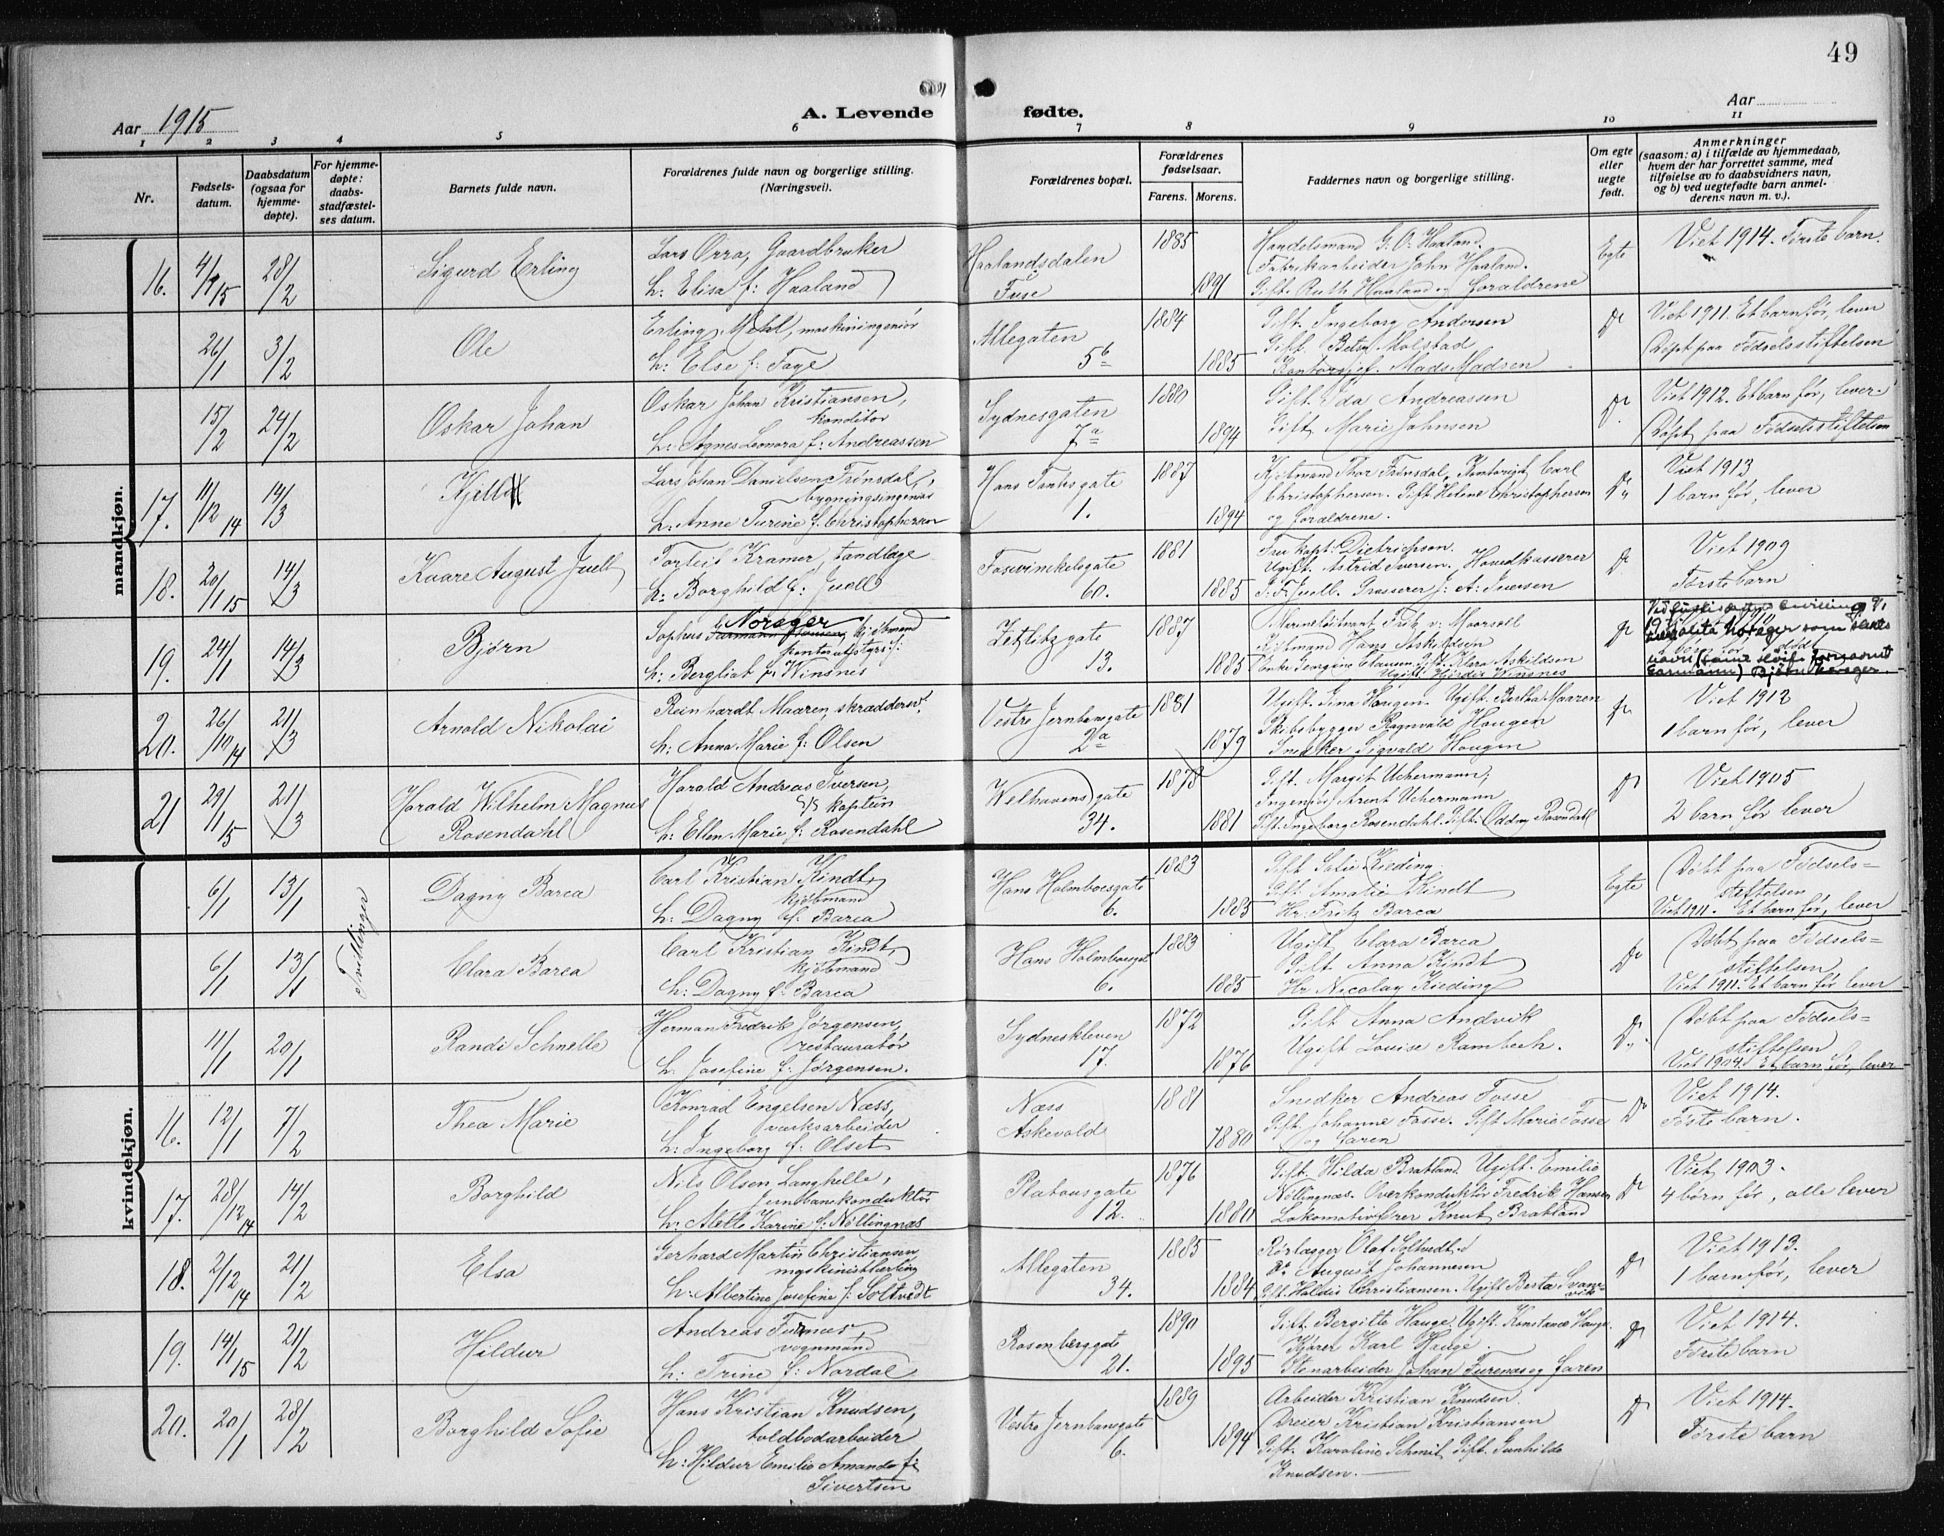 49
Aar 1915
A. Levende
fødte.
Aar
1 2 3 4 5 6 7 8 9 10 11
Nr.
Fødsels-
datum.
Daabsdatum
(ogsaa for
hjemme-
døpte).
For hjemme-
døpte:
daabs-
stadfæstel-
ses datum.
Barnets fulde navn.
Forældrenes fulde navn og borgerlige stilling.
(Næringsvei).
Forældrenes bopæl.
Forældrenes
fødselsaar.
Farens. Morens.
Faddernes navn og borgerlige stilling.
Om egte
eller
uegte
født.
Anmerkninger
(saasom: a) i tilfælde av hjemmedaab,
hvem der har forrettet samme, med
tilføielse av to daabsvidners navn,
og b) ved uegtefødte barn anmel-
derens navn m. v.).
mandkjøn.
16. 28/2 Sigurd Erling
Lars Orra, Gaardbruker
h: Elisa f: Haaland
Haalandsdalen
Fuse
1885 1891
Handelsmand G. O. Haaland.
Fabrikarbeider John Haaland.
Gift. Ruth Haaland og forældrene
Egte
Viet 1914. Første barn.
26/1 3/2 Ole
Erling Mehl, maskiningeniør
h: Else f: Fage
Allegaten
5b
1884 1885
Gift. Ingeborg Andersen
Gift. Betsy Molstad
Kontorchef. Mads Madsen
Do
Viet 1911. Et barn før, lever
Døpt paa Fødselsstiftelsen
15/2 24/2 Oskar Johan
Oskar Johan Kristiansen,
konditor
h: Agnes Leonora f: Andreassen
Sydnesgaten
7a
1880 1894
Gift Ida Andreassen
Gift Marie Johnsen
Do
Viet 1912. Et barn før, lever.
Døpt paa Fødselsstiftelsen
17. 11/12 14 14/3 Kjell
Lars Johan Danielsen Frønsdal,
bygningsingeniør
h: Anne Turine f: Christophersen
Hans Tanksgate
1.
1887 1894
Kjøbmand Thor Frønsdal, Kontorist Carl
Christophersen. Gift Helene Christophersen
og forældrene.
Do
Viet 1913
1 barn før, lever
18. 20/1 15 14/3 Kaare August Juell
Torleif Kramer, tandlæge
h: Borghild f: Juell
Fosvinckelsgate
60.
1881 1885
Fru kapt: Dietrichson.
Ugift Astrid Iversen. Hovedkasserer
J. F. Juell. Grosserer J. A. Iversen
Do
Viet 1909
Første barn
19. 24/1 14/3 Bjørn
Noreger
Sophus kjøbmand
h: Bergliot f: Winsnes
Zetlitzgate
13.
1887 1885
Kjøbmand Hans Askildsen
Enke Georgine Clausen. Gift. Klara Askildsen
Ugift Hjørdis Winsnes
Do
Bjørn Noreger.
20. 26/10 14 21/3 Arnold Nikolai
Reinhardt Maaren, skræddersv.
h: Anna Marie f: Olsen
Vestre Jernbanegate
2a
1881 1879
Ugift. Gina Haugen. Ugift. Bertha Maaren
Skibsbygger Ragnvald Haugen
Snedker Sigvald Haugen
Do
Viet 1912
1 barn før, lever
21 29/1 15 21/3 Harald Wilhelm Magnus
Rosendahl
Harald Andreas Iversen,
s/s kaptein
h: Ellen Marie f: Rosendahl
Welhavensgate
34.
1878 1881
Gift. Margit Uchermann,
Ingeniør Arent Uchermann
Gift. Ingeborg Rosendahl. Gift. Oddny Rosendal
Do
Viet 1905
2 barn før lever
kvindekjøn.
6/1 13/1 Tvillinger Dagny Barca
Carl Kristian Kindt,
kjøbmand
h: Dagny f: Barca
Hans Holmboesgate
6.
1883 1885
Gift Sofie Kieding
Gift Amalie Kindt
Hr. Fritz Barca
Egte
Døbt paa Fødsels=
stiftelsen
Viet 1911. Et barn før, lever
6/1 13/1 Clara Barca
Carl Kristian Kindt,
kjøbmand
h: Dagny f: Barca
Hans Holmboesgt
6.
1883 1885
Ugift Clara Barca
Gift Anna Kindt
Hr. Nicolay Kieding
Do
Døbt paa Fødsels=
stiftelsen
Viet 1911. Et barn før lever
11/1 20/1 Randi Schnelle
Herman Fredrik Jørgensen,
restauratør
h. Josefine f: Jørgensen.
Sydneskleven
17.
1872 1876
Gift Anna Andvik
Ugift Louise Rambech.
Do
Døbt paa Fødsels=
stiftelsen
Viet 1904. Et barn før, lever
16. 12/1 7/2 Thea Marie
Konrad Engelsen Næss,
verksarbeider
h: Ingeborg f: Olset
Næss
Askevold
1881 1880
Snedker Andreas Fosse
Gift Johanne Fosse. Gift Marie Fosse
og faren
Do
Viet 1914.
Første barn.
17. 28/12 14 14/2 Borghild
Nils Olsen Langhelle,
jernbanekonduktør
h: Mette Karine f: Nøllingnæs
Platousgate
12.
1876 1880
Gift. Hilda Bratland. Ugift. Emilie
Nøllingnæs. Overkonduktør Fredrik Hansen
Lokomotivfører Knut Bratland
Do
Viet 1903.
4 børn før, alle lever
18. 2/12 14 21/2 Elsa
Gerhard Martin Christiansen
maskinistlærling
h: Albertine Josefine f: Soltvedt
Allegaten
34.
1885 1884
Rørlægger Olaf Soltvedt.
Do August Johannesen
Gift Haldis Christiansen. Ugift Berta Svane-
vik
Do
Viet 1913.
1 barn før, lever
19. 14/1 15 21/2 Hildur
Andreas Furnæs
vognmand
h: Trine f: Nordal
Rosenberggate
21.
1890 1895
Gift Bergitte Hauge. Ugift. Konstance Hauge.
Kjører Karl Hauge.
Stenarbeider Johan Furenæs og faren
Do
Viet 1914.
Første barn
20. 20/1 28/2 Borghild Sofie
Hans Kristian Knudsen,
toldbodarbeider
h: Hildur Emilie Amanda f:
Sivertsen
Vestre Jernbanegate
6.
1889 1894
Arbeider Kristian Knudsen.
Dreier Kristian Kristiansen
Gift. Karoline Schmit. Gift. Gunhilde
Knudsen.
Do
Viet 1914.
Første barn